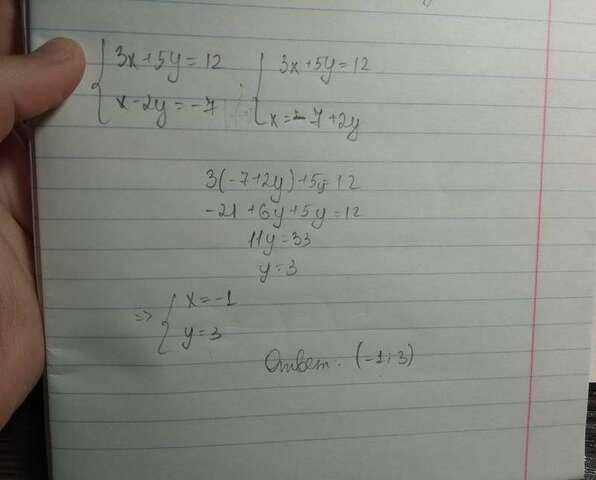 3x+5y=12 3x+5y=12
x-2y=-7 x=-7+2y
3(-7+2y)+5y=12
-21+6y+5y=12
11y=33
y=3
=> x=-1
y=3
Ответ. (-1;3)